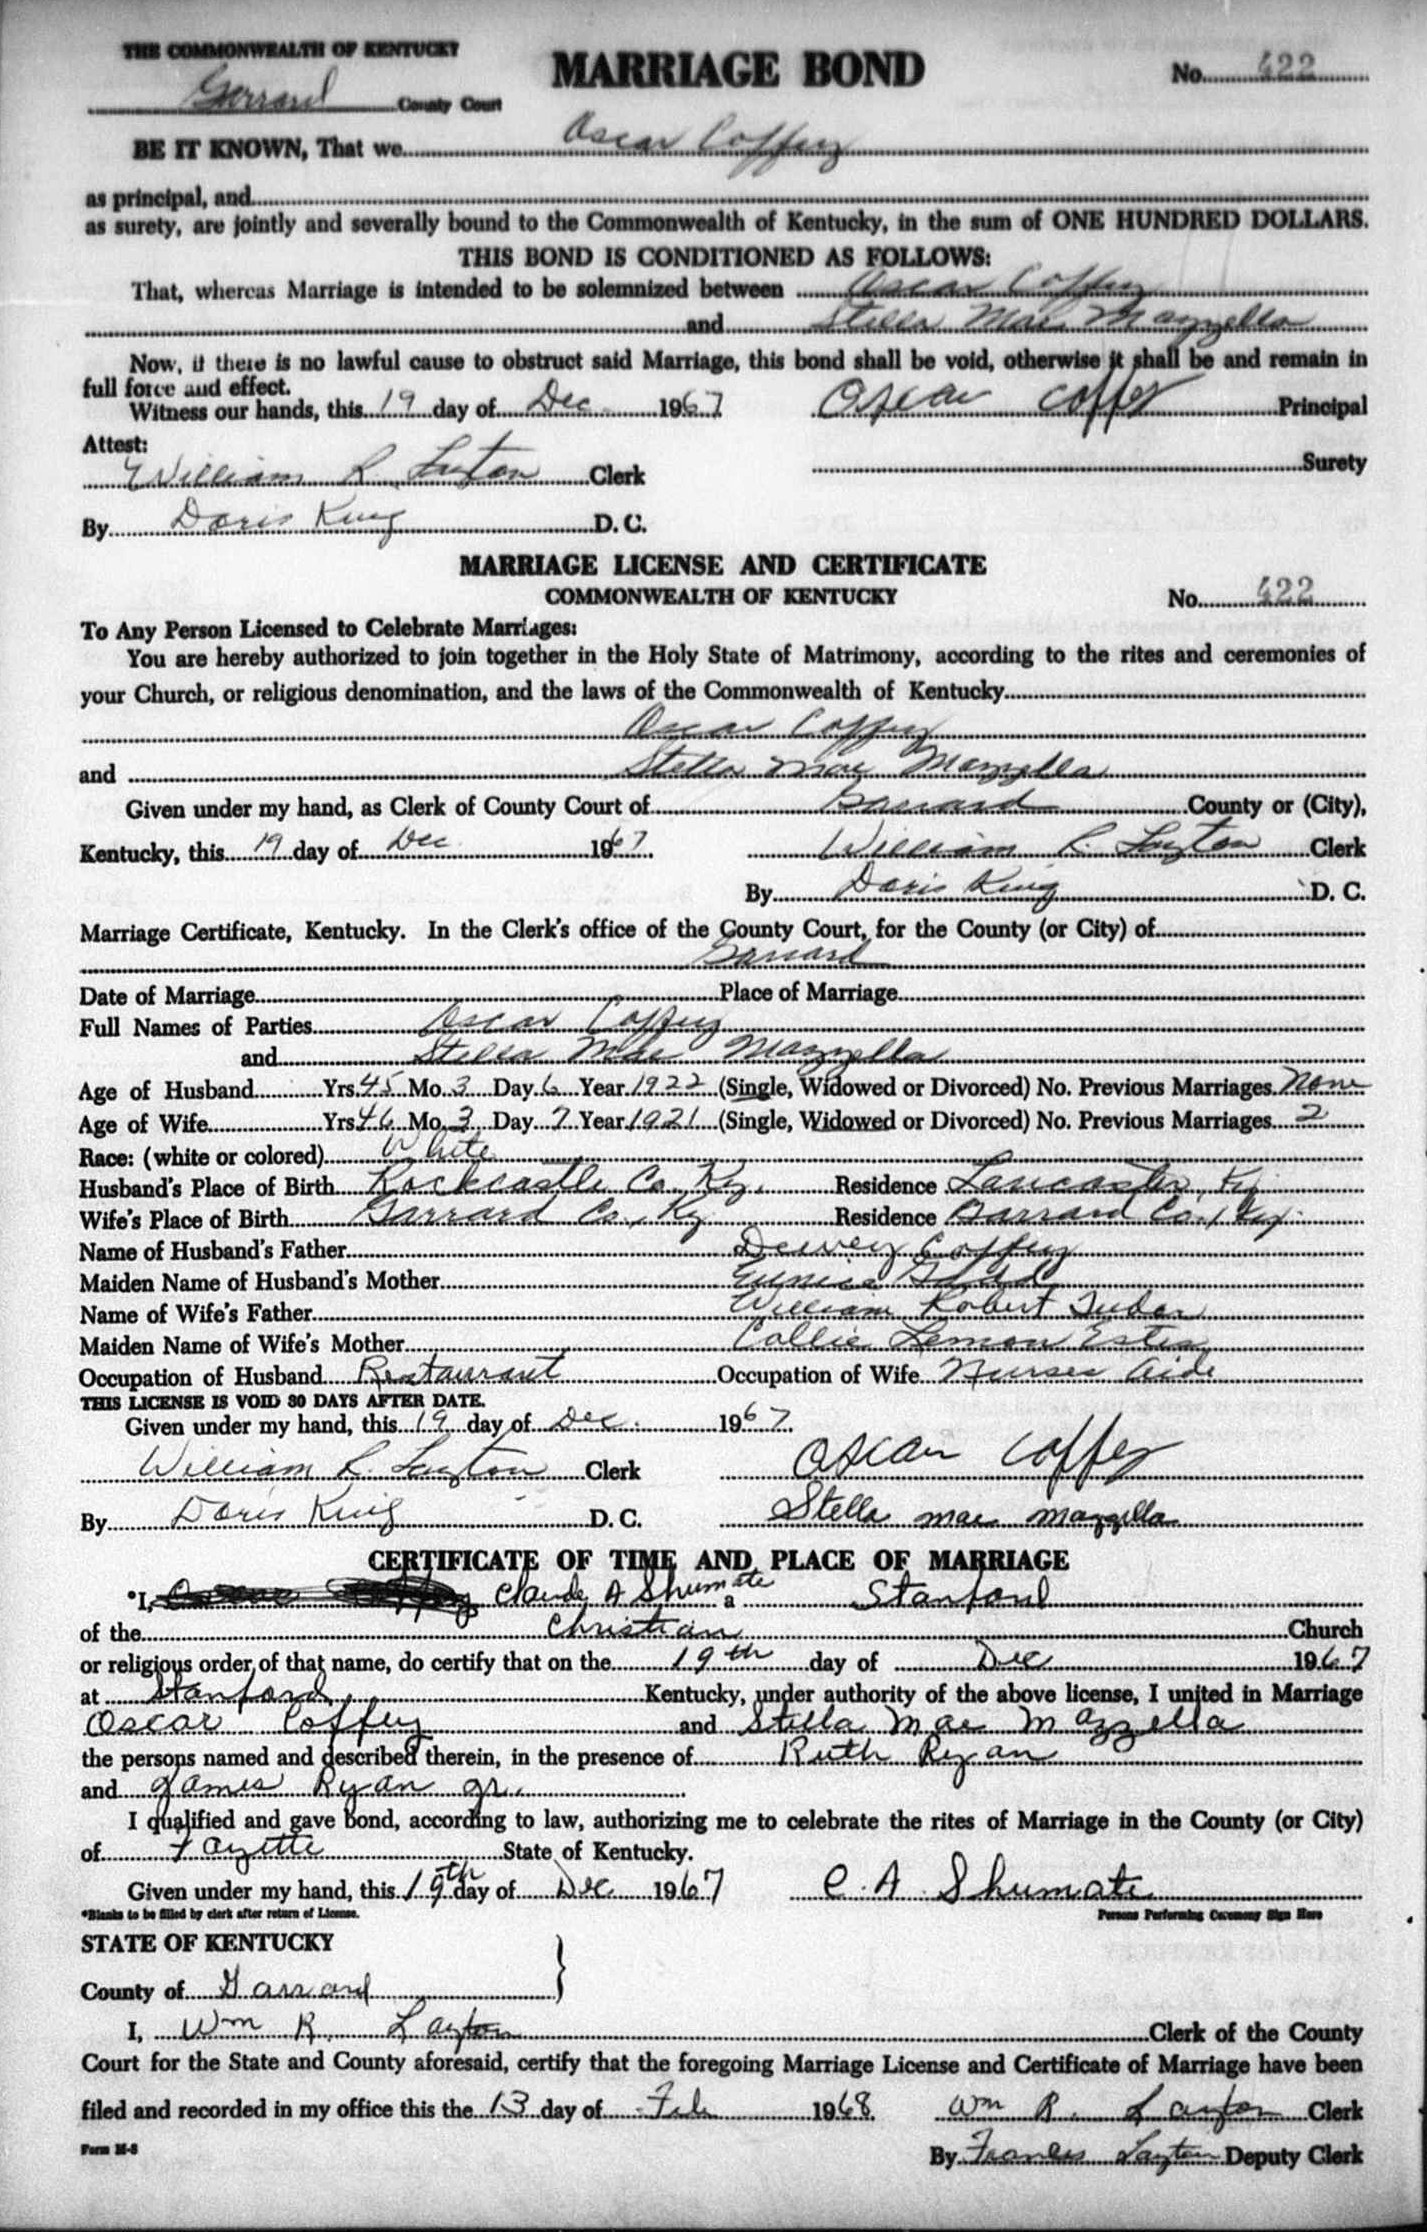 THE COMMONWEALTH OF KENTUCKY
MARRIAGE BOND
No. 422
Garrard County Court
BE IT KNOWN, That we Oscar Coffey
as principal, and
as surety, are jointly and severally bound to the Commonwealth of Kentucky, in the sum of ONE HUNDRED DOLLARS.
THIS BOND IS CONDITIONED AS FOLLOWS:
That, whereas Marriage is intended to be solemnized between Oscar Coffey
and Stella Mae Mazzella
Now, if there is no lawful cause to obstruct said Marriage, this bond shall be void, otherwise it shall be and remain in
full force and effect.
Witness our hands, this 19 day of Dec. 1967 Oscar Coffey Principal
Attest:
William R. Layton Clerk Surety
By Doris King D. C.
MARRIAGE LICENSE AND CERTIFICATE
COMMONWEALTH OF KENTUCKY No. 422
To Any Person Licensed to Celebrate Marriages:
You are hereby authorized to join together in the Holy State of Matrimony, according to the rites and ceremonies of
your Church, or religious denomination, and the laws of the Commonwealth of Kentucky
Oscar Coffey
and Stella Mae Mazzella
Given under my hand, as Clerk of County Court of Garrard County or (City),
Kentucky, this 19 day of Dec 1967 William R. Layton Clerk
By Doris King D. C.
Marriage Certificate, Kentucky. In the Clerk's office of the County Court, for the County (or City) of
Garrard
Date of Marriage Place of Marriage
Full Names of Parties Oscar Coffey
and Stella Mae Mazzella
Age of Husband Yrs. 45 Mo. 3 Day 6 Year 1922 (Single, Widowed or Divorced) No. Previous Marriages None
Age of Wife Yrs. 46 Mo. 3 Day 7 Year 1921 (Single, Widowed or Divorced) No. Previous Marriages 2
Race: (white or colored) White
Husband's Place of Birth Rockcastle Co. Ky. Residence Lancaster, Ky
Wife's Place of Birth Garrard Co., Ky Residence Garrard Co., Ky.
Name of Husband's Father Dewey Coffey
Maiden Name of Husband's Mother Eunice Gadd
Name of Wife's Father William Robert Tudor
Maiden Name of Wife's Mother Callie Lemon Estes
Occupation of Husband Restaurant Occupation of Wife Nurses Aide
THIS LICENSE IS VOID 30 DAYS AFTER DATE.
Given under my hand, this 19 day of Dec. 1967
William R. Layton Clerk Oscar Coffey
By Doris King D. C. Stella Mae Mazzella
CERTIFICATE OF TIME AND PLACE OF MARRIAGE
*I, Claude A Shumate a Stanford
of the Christian Church
or religious order of that name, do certify that on the 19th day of Dec 1967
at Stanford, Kentucky, under authority of the above license, I united in Marriage
Oscar Coffey and Stella Mae Mazzella
the persons named and described therein, in the presence of Ruth Ryan
and James Ryan Jr.
I qualified and gave bond, according to law, authorizing me to celebrate the rites of Marriage in the County (or City)
of Fayette State of Kentucky.
Given under my hand, this 19th day of Dec 1967 C. A. Shumate
*Blanks to be filled by clerk after return of License. Persons Performing Ceremony Sign Here
STATE OF KENTUCKY
County of Garrard
I, Wm R. Layton Clerk of the County
Court for the State and County aforesaid, certify that the foregoing Marriage License and Certificate of Marriage have been
filed and recorded in my office this the 13 day of Feb 1968. Wm R. Layton Clerk
Form M-8
By Frances Layton Deputy Clerk